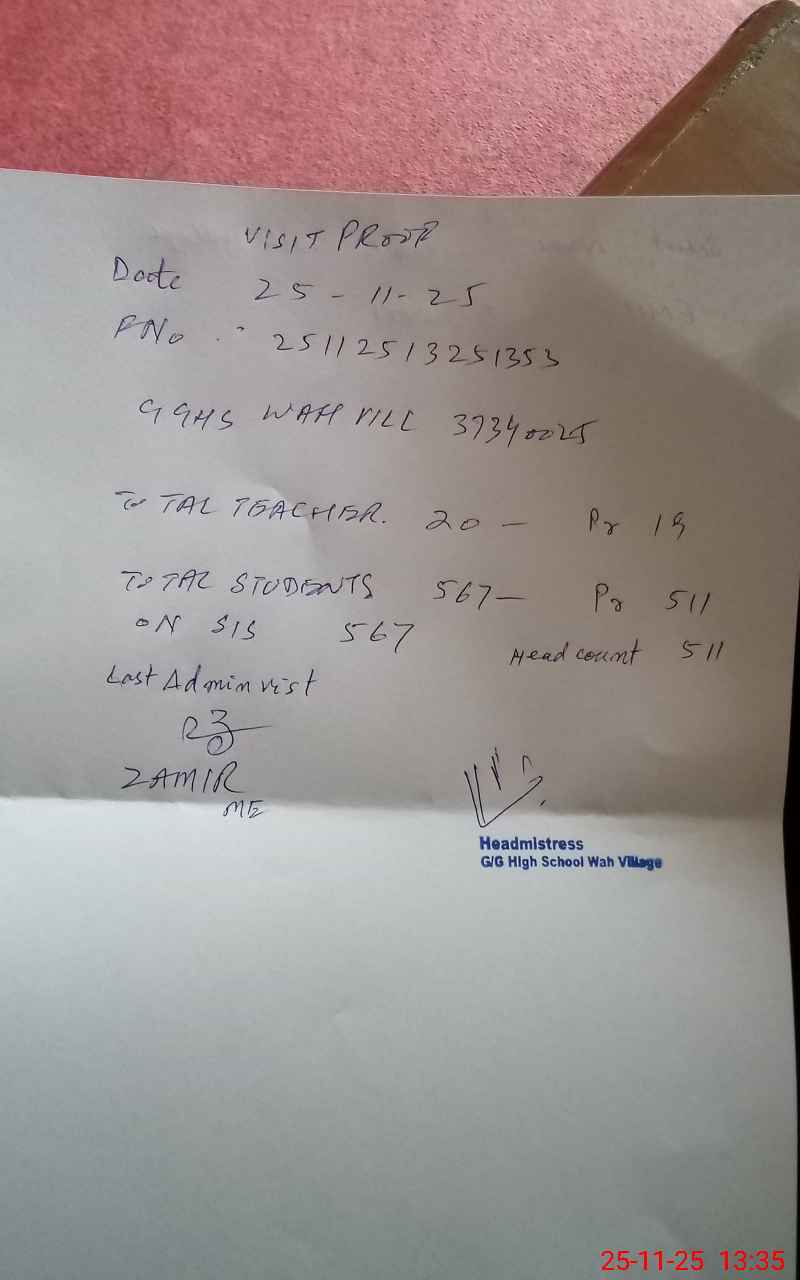 VISIT PROOF
Date 25 - 11 - 25
FNo : 25112513251353
GGHS WAH VILL 37340025
TOTAL TEACHER. 20 — Pr 19
TOTAL STUDENTS 567 — Pr 511
ON SIS 567
Head count 511
Last Admin vist
ZAMIR
ME
Headmistress
G/G High School Wah Village
25-11-25 13:35